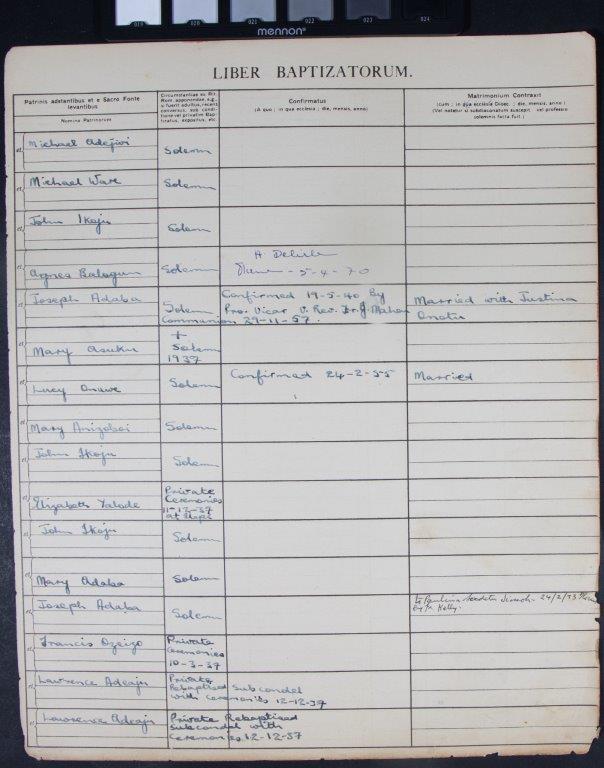 019 020 021 022 023 024
mennon®
LIBER BAPTIZATORUM.
Patrinis adstantibus et e Sacro Fonte levantibus
Nomina Patrinorum
Circumstantiae ex Rit. Rom. apponendae, e.g., si fuerit adultus, recens conversus, sub conditione vel privatim Baptizatus, expositus, etc.
Confirmatus
(A quo ; in qua ecclesia ; die, mensis, anno)
Matrimonium Contraxit
(Cum ; in qua ecclesia Dioec. ; die, mensis, anno)
(Vel notetur si subdiaconatum suscepit vel professio solemnis facta fuit.)
et Michael Adejiri Solemn
et Michael Ware Solemn
et John Ikoju Solemn
et Agnes Balogun Solemn
5-4-70
Joseph Adaba Solemn
Communion 29-11-57.
Confirmed 19-5-40 By
Pro. Vicar V. Rev. Dr. J. Mahon
Married with Justina
et Mary Asuku + Solemn
1937
et Lucy Solemn Confirmed 24-2-55 Married
et Mary Solemn
et John Ikoju Solemn
et Elizabeth Yalode Private
Ceremonies
11-12-37
et John Ikoju Solemn
et Mary Adaba Solemn
et Joseph Adaba Solemn
24/2/53
by Fr Kelly.
et Francis Ozeigo Private
Ceremonies
10-3-37
et Lawrence Adeaju Private
Rebaptised Subcondel
with Ceremonies 12-12-37
et Lawrence Adeaju Private Rebaptised
Subcondel with
Ceremonies 12-12-37